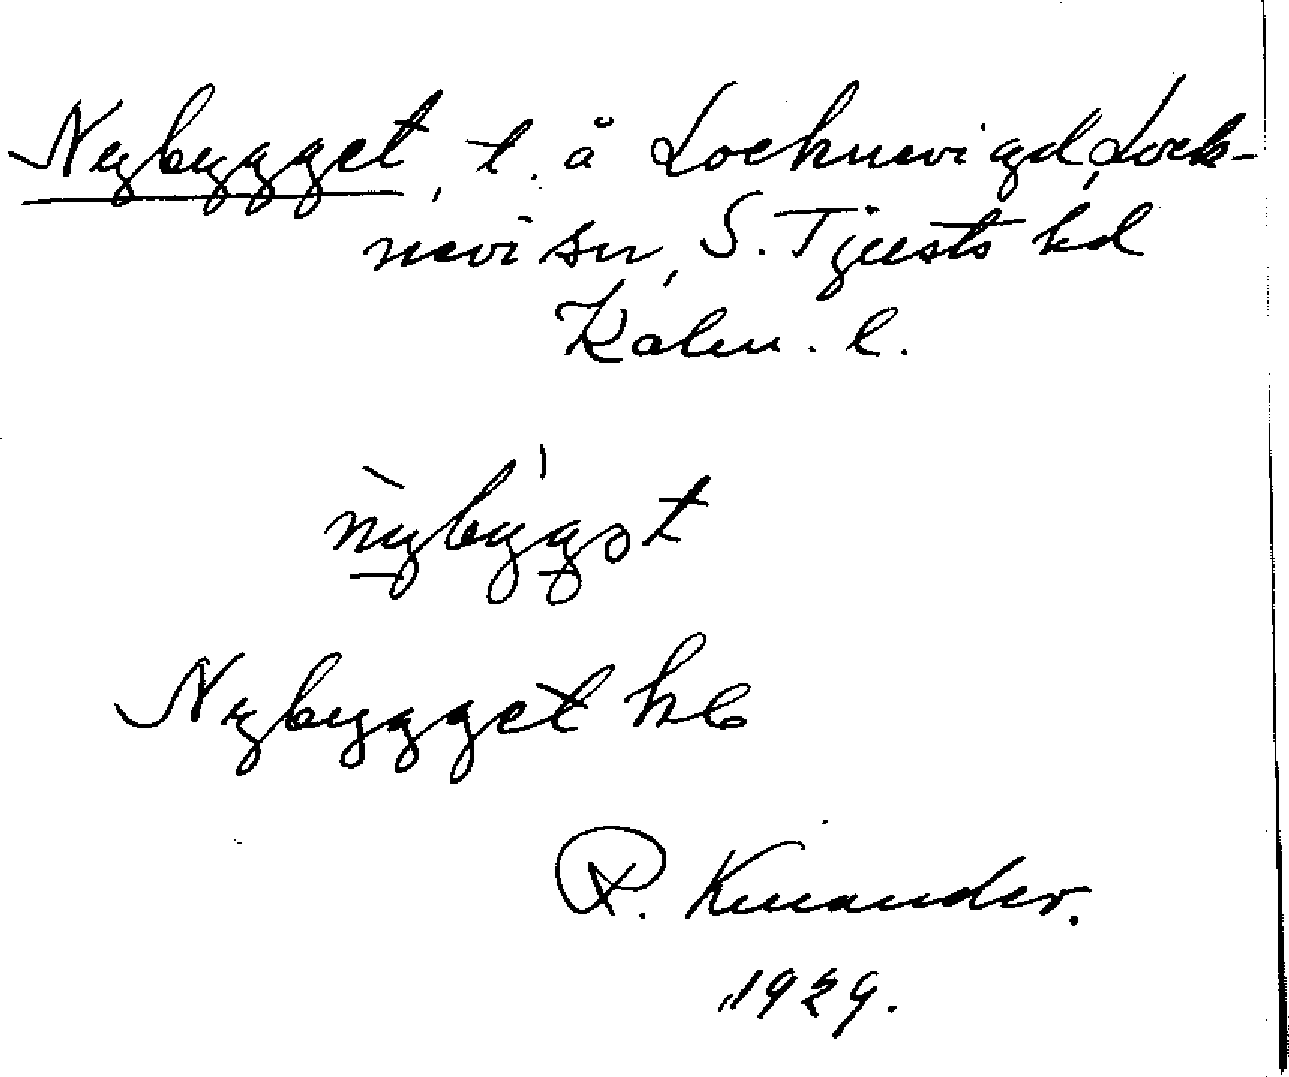 Nybygget, t. å Locknevi gd, Lock-
nevi sn, S. Tjusts hd
Kalm. l.
nỳbýgət
Nybygget hb
R. Kinander.
1929.